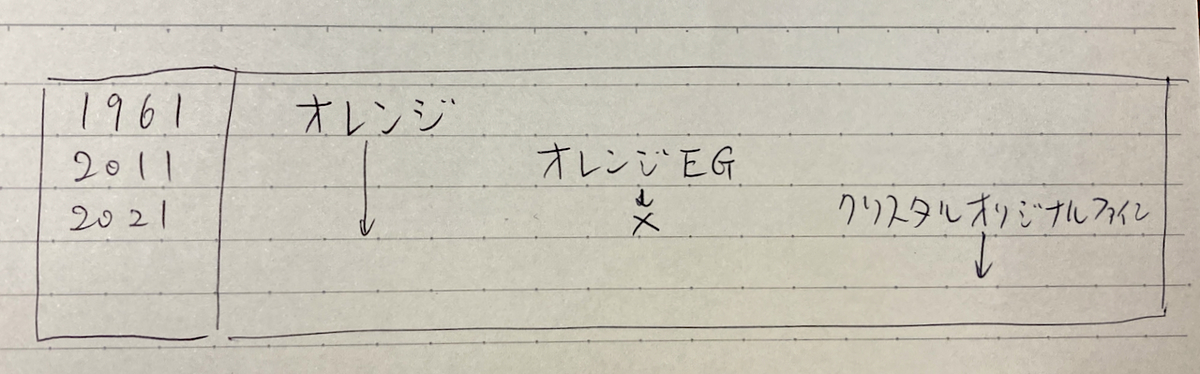 1961 オレンジ
2011 オレンジEG
×
2021 クリスタルオリジナルファイン